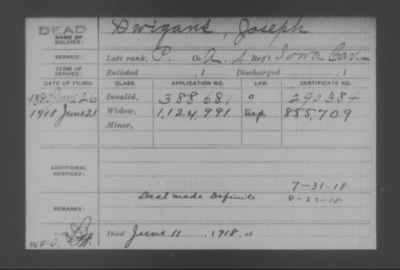 DEAD
NAME OF SOLDIER:
Dwigans, Joseph
SERVICE:
Late rank, C. Co. A. 4 Reg't Iowa Cav.
TERM OF SERVICE:
Enlisted , 1 Discharged , 1
DATE OF FILING. CLASS. APPLICATION NO. LAW. CERTIFICATE NO.
1880 June 26 Invalid, 388681 290384
1918 June 21 Widow, 1,124,991 855,709
Minor,
ADDITIONAL SERVICES:
7-31-18
Decl made Definite
REMARKS:
Died June 11, 1918, at